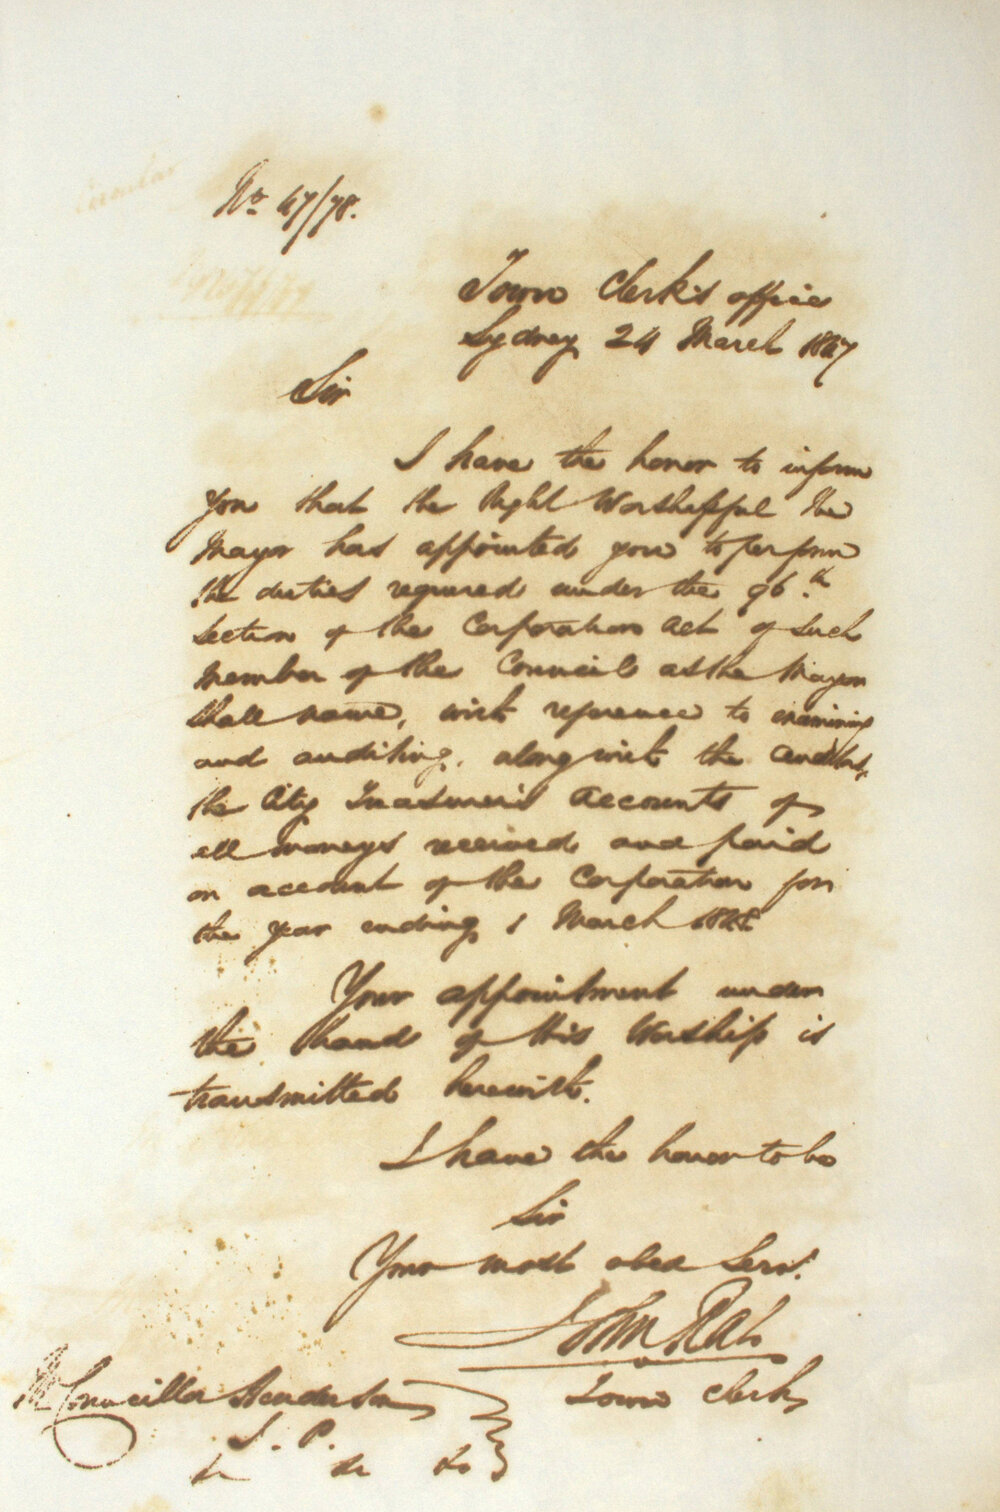 Circular
No. 47/78.
Town Clerk's office
Sydney 24 March 1847
Sir
I have the honor to inform
you that the Right Worshipful the
Mayor has appointed you to perform
the duties required under the 96.th
Section of the Corporation Act of such
Member of the Council as the Mayor
shall name, with reference to examining
and auditing, along with the auditors,
the City Treasurer's Accounts of
all moneys received and paid
on account of the Corporation for
the year ending 1 March
Your appointment under
the hand of His Worship is
transmitted herewith.
I have the honor to be
Sir
Your most obed Serv.
John Rae
Town Clerk
Mr Councillor Henderson
J. P.